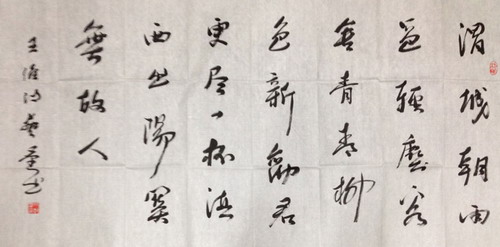 渭城朝雨
浥輕塵客
舍青青柳
色新勸君
更尽一杯酒
西出陽關
無故人
王維诗书